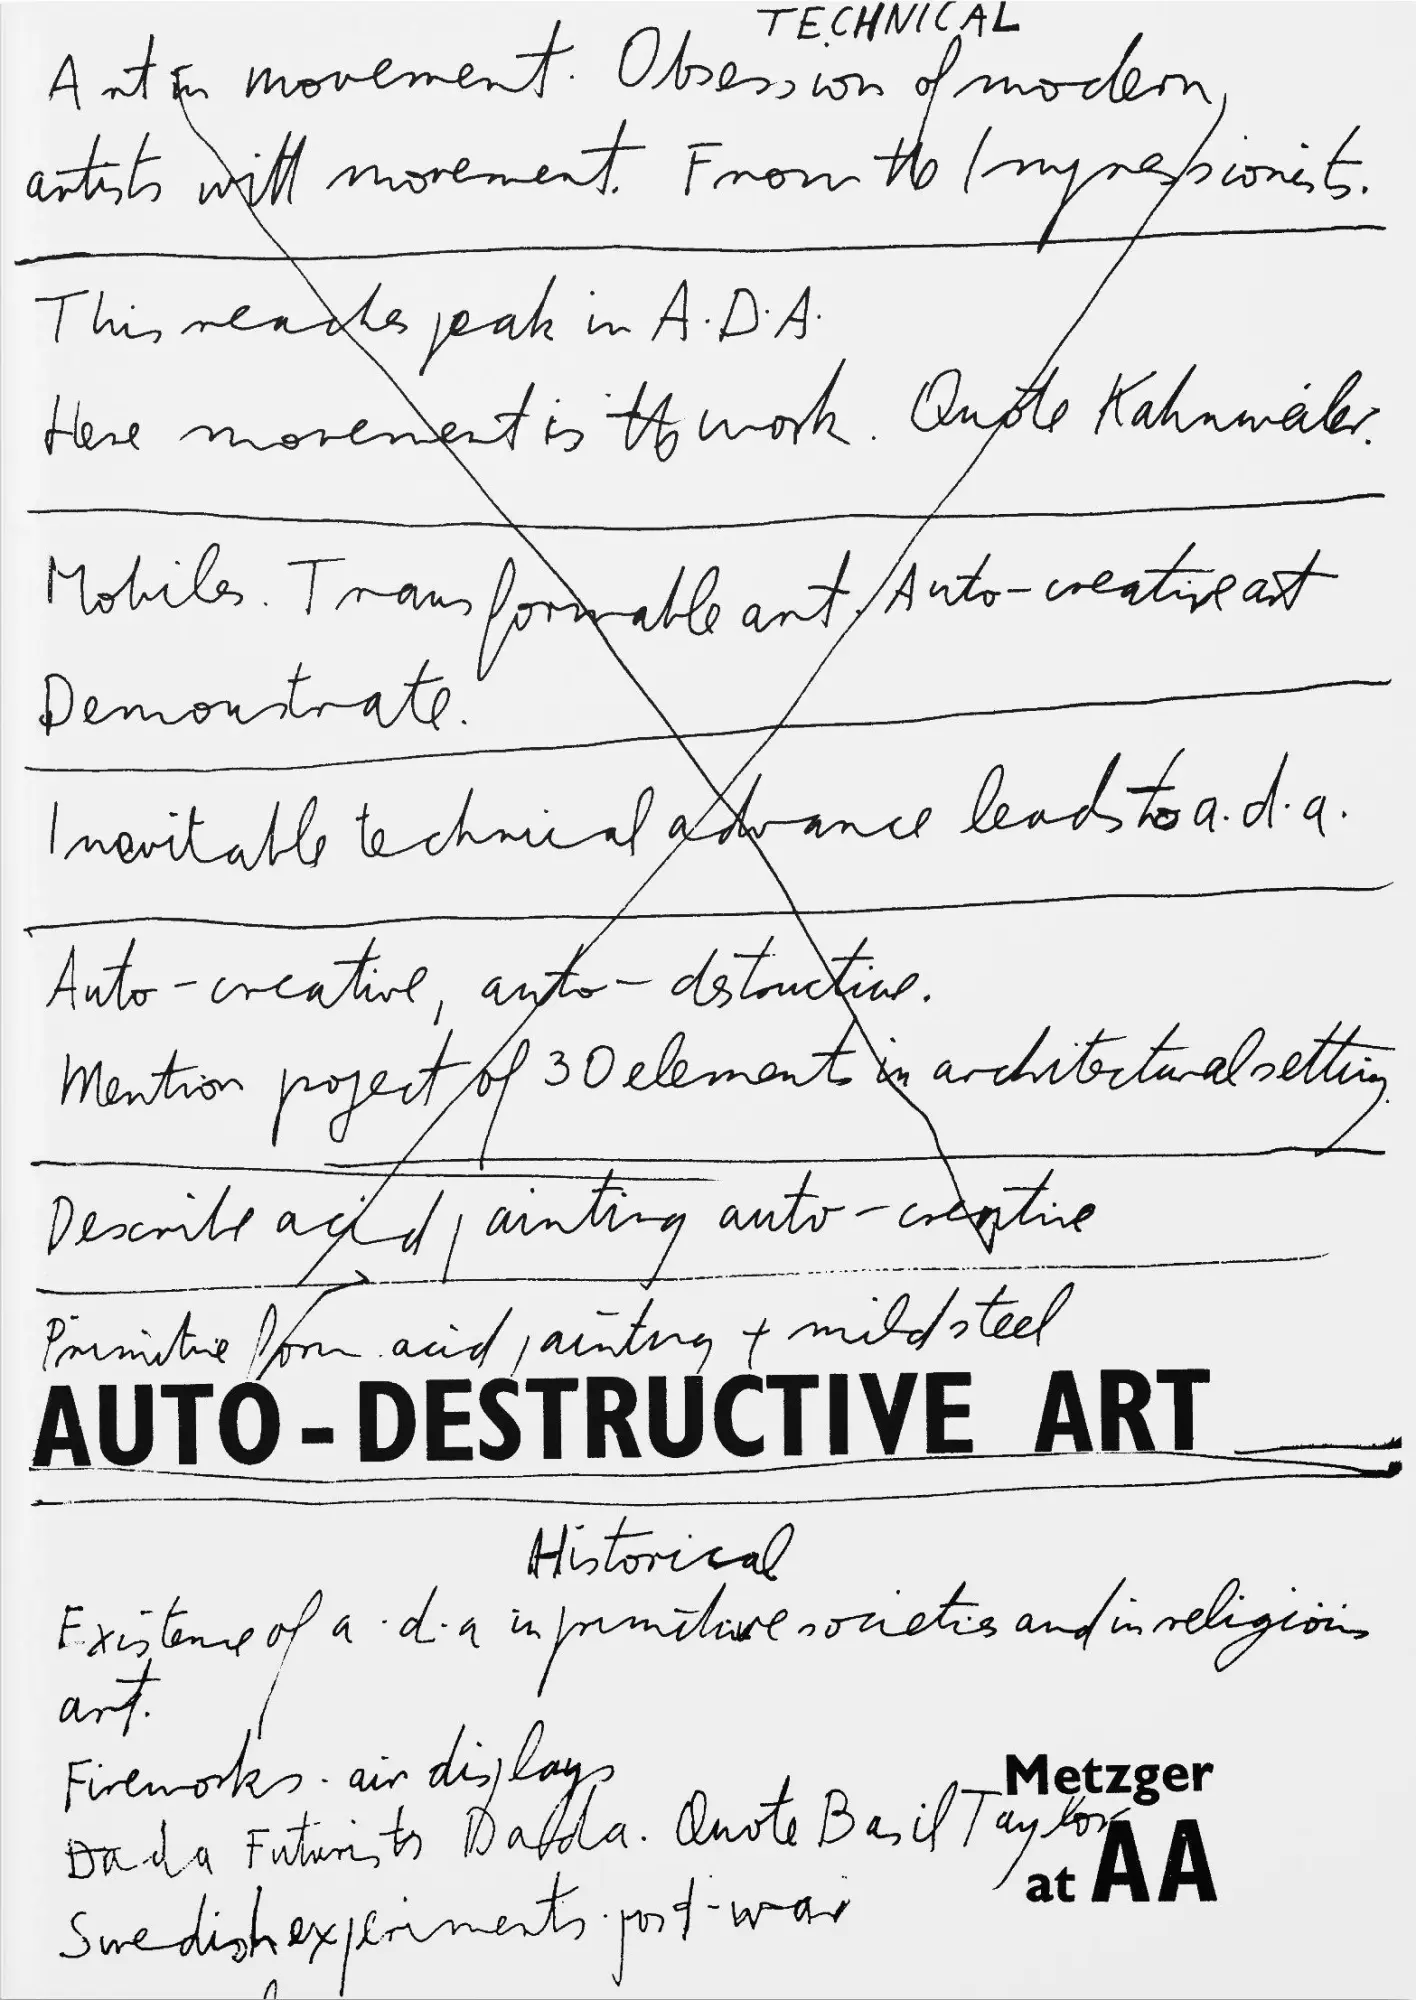 TECHNICAL
Art in movement. Obsession of modern
artists with movement. From the Impressionists.
This reaches peak in A.D.A.
Here movement is the work. Quote Kahnweiler.
Mobiles. Transformable art. Auto-creative art
Demonstrate.
Inevitable technical advance leads to a.d.a.
Auto-creative, auto-destructive.
Mention project of 30 elements in architectural setting
Describe acid painting auto-creative
Primitive form acid painting + mild steel
AUTO-DESTRUCTIVE ART
Historical
Existence of a.d.a in primitive societies and in religious
art.
Fireworks. air displays
Dada Futurists Dada. Quote Basil Taylor
Swedish experiments. post-war
Metzger
at AA